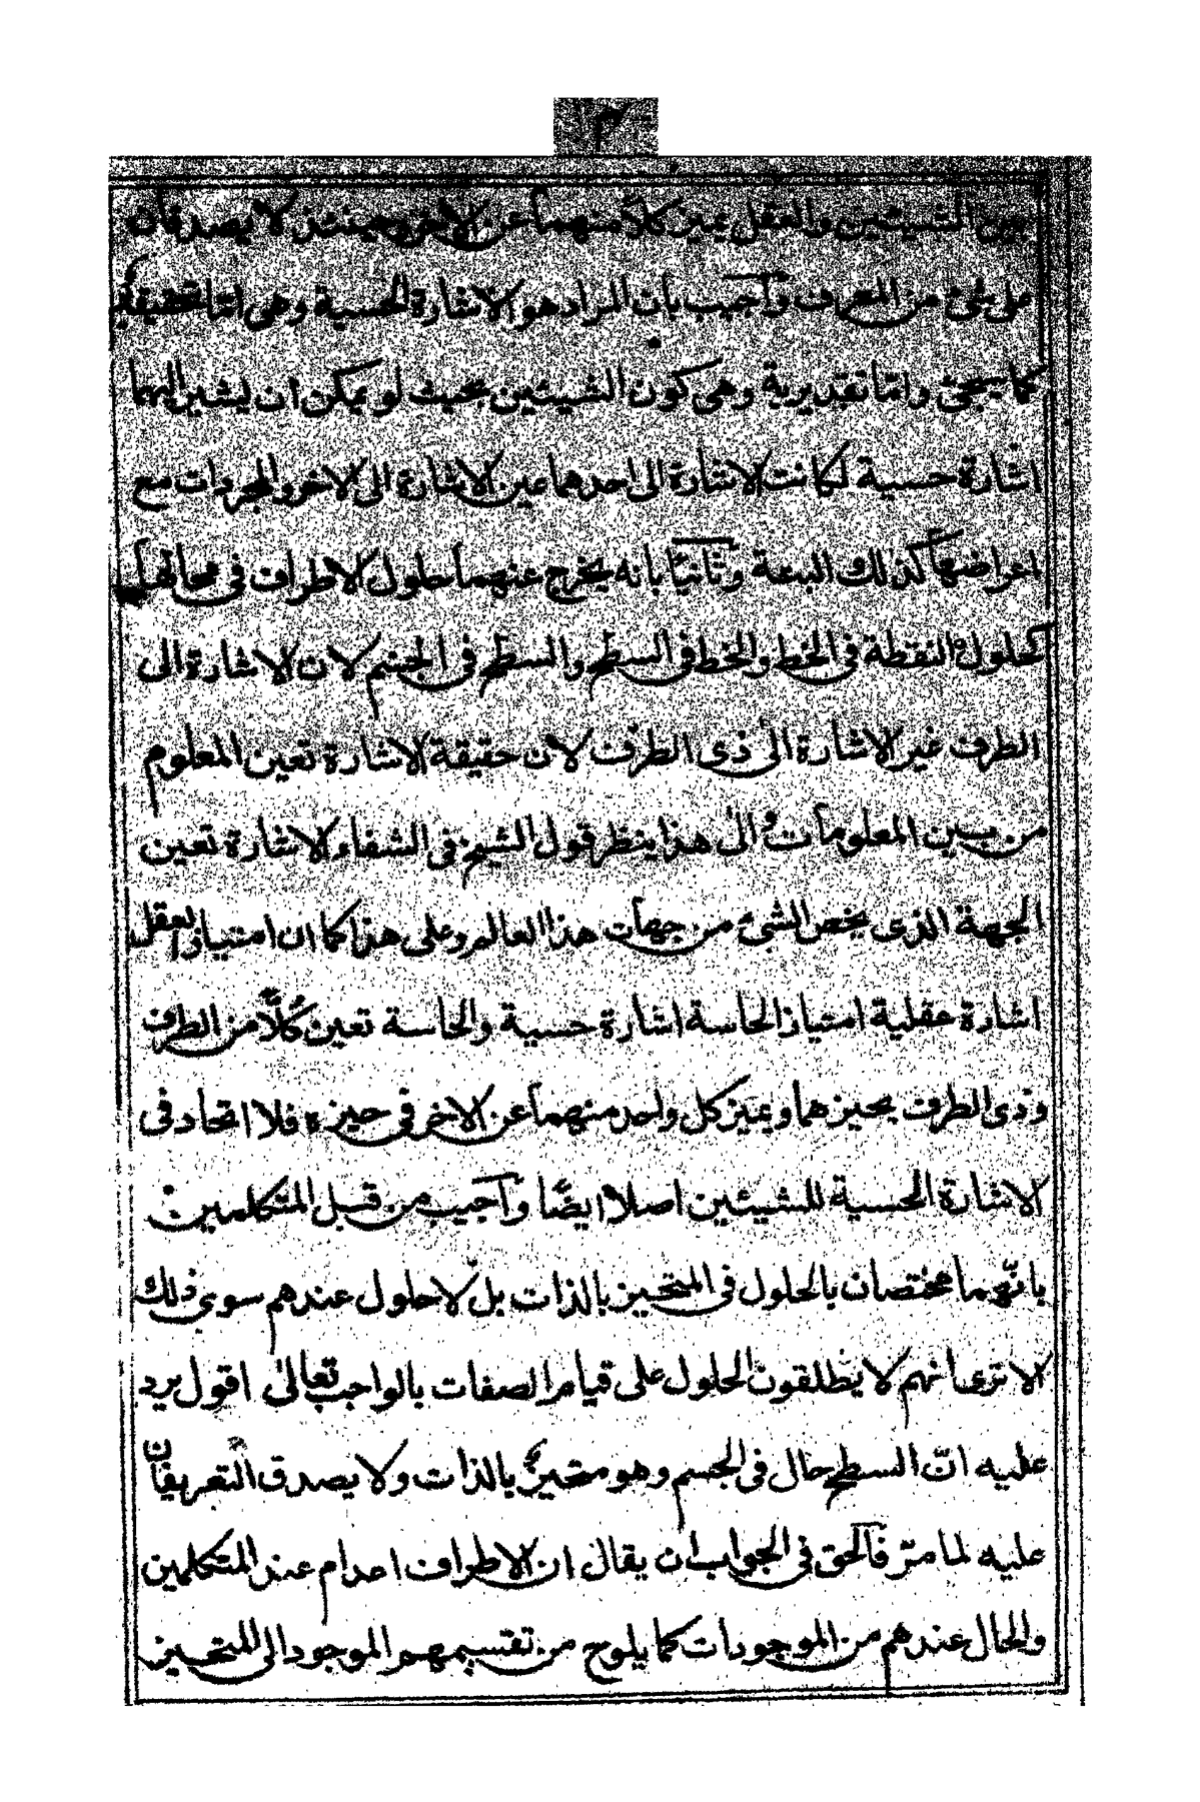 بين الشيئين والعقل يميز كلا منهما عن الاخر وحينئذ لا يصدقان
على شئ من المعرف وآجيب بان المراد هو الاشارة الحسية وهى اما تحقيقية
كما سيجئ واما تقديرية وهى كون الشيئين بحيث لو يمكن ان يشير اليهما
اشارة حسية لكانت الاشارة الى احدهما عين الاشارة الى الاخر والمجردات مع
اعراضها كذلك البتة وثانيًا بانه يخرج عنهما حلول الاطراف فى محالها
كحلول النقطة فى الخط والخط فى السطح والسطح فى الجسم لان الاشارة الى
الطرف غير الاشارة الى ذى الطرف لان حقيقة الاشارة تعين المعلوم
من بين المعلومات والى هذا ينظر قول الشيخ فى الشفاء الاشارة تعين
الجهة الذى يخص الشئ من جهات هذا العالم وعلى هذا كما ان امتياز العقل
اشارة عقلية امتياز الحاسة اشارة حسية والحاسة تعين كُلًّا من الطرف
وذى الطرف بحيزهما ويميز كل واحد منهما عن الاخر فى حيزه فلا اتحاد فى
الاشارة الحسية للشيئين اصلا ايضًا وآجيب من قبل المتكلمين
بانّهما مختصان بالحلول فى المتحيز بالذات بل لا حلول عندهم سوى ذلك
الا ترى انهم لا يطلقون الحلول على قيام الصفات بالواجب تعالى اقول يرد
عليه انّ السطح حال فى الجسم وهو متحيزٌ بالذات ولا يصدق التعريفان
عليه لما مرّ فآلحق فى الجواب ان يقال ان الاطراف اعدام عند المتكلمين
والحال عندهم من الموجودات كما يلوح من تقسيمهم الموجود الى المتحيز